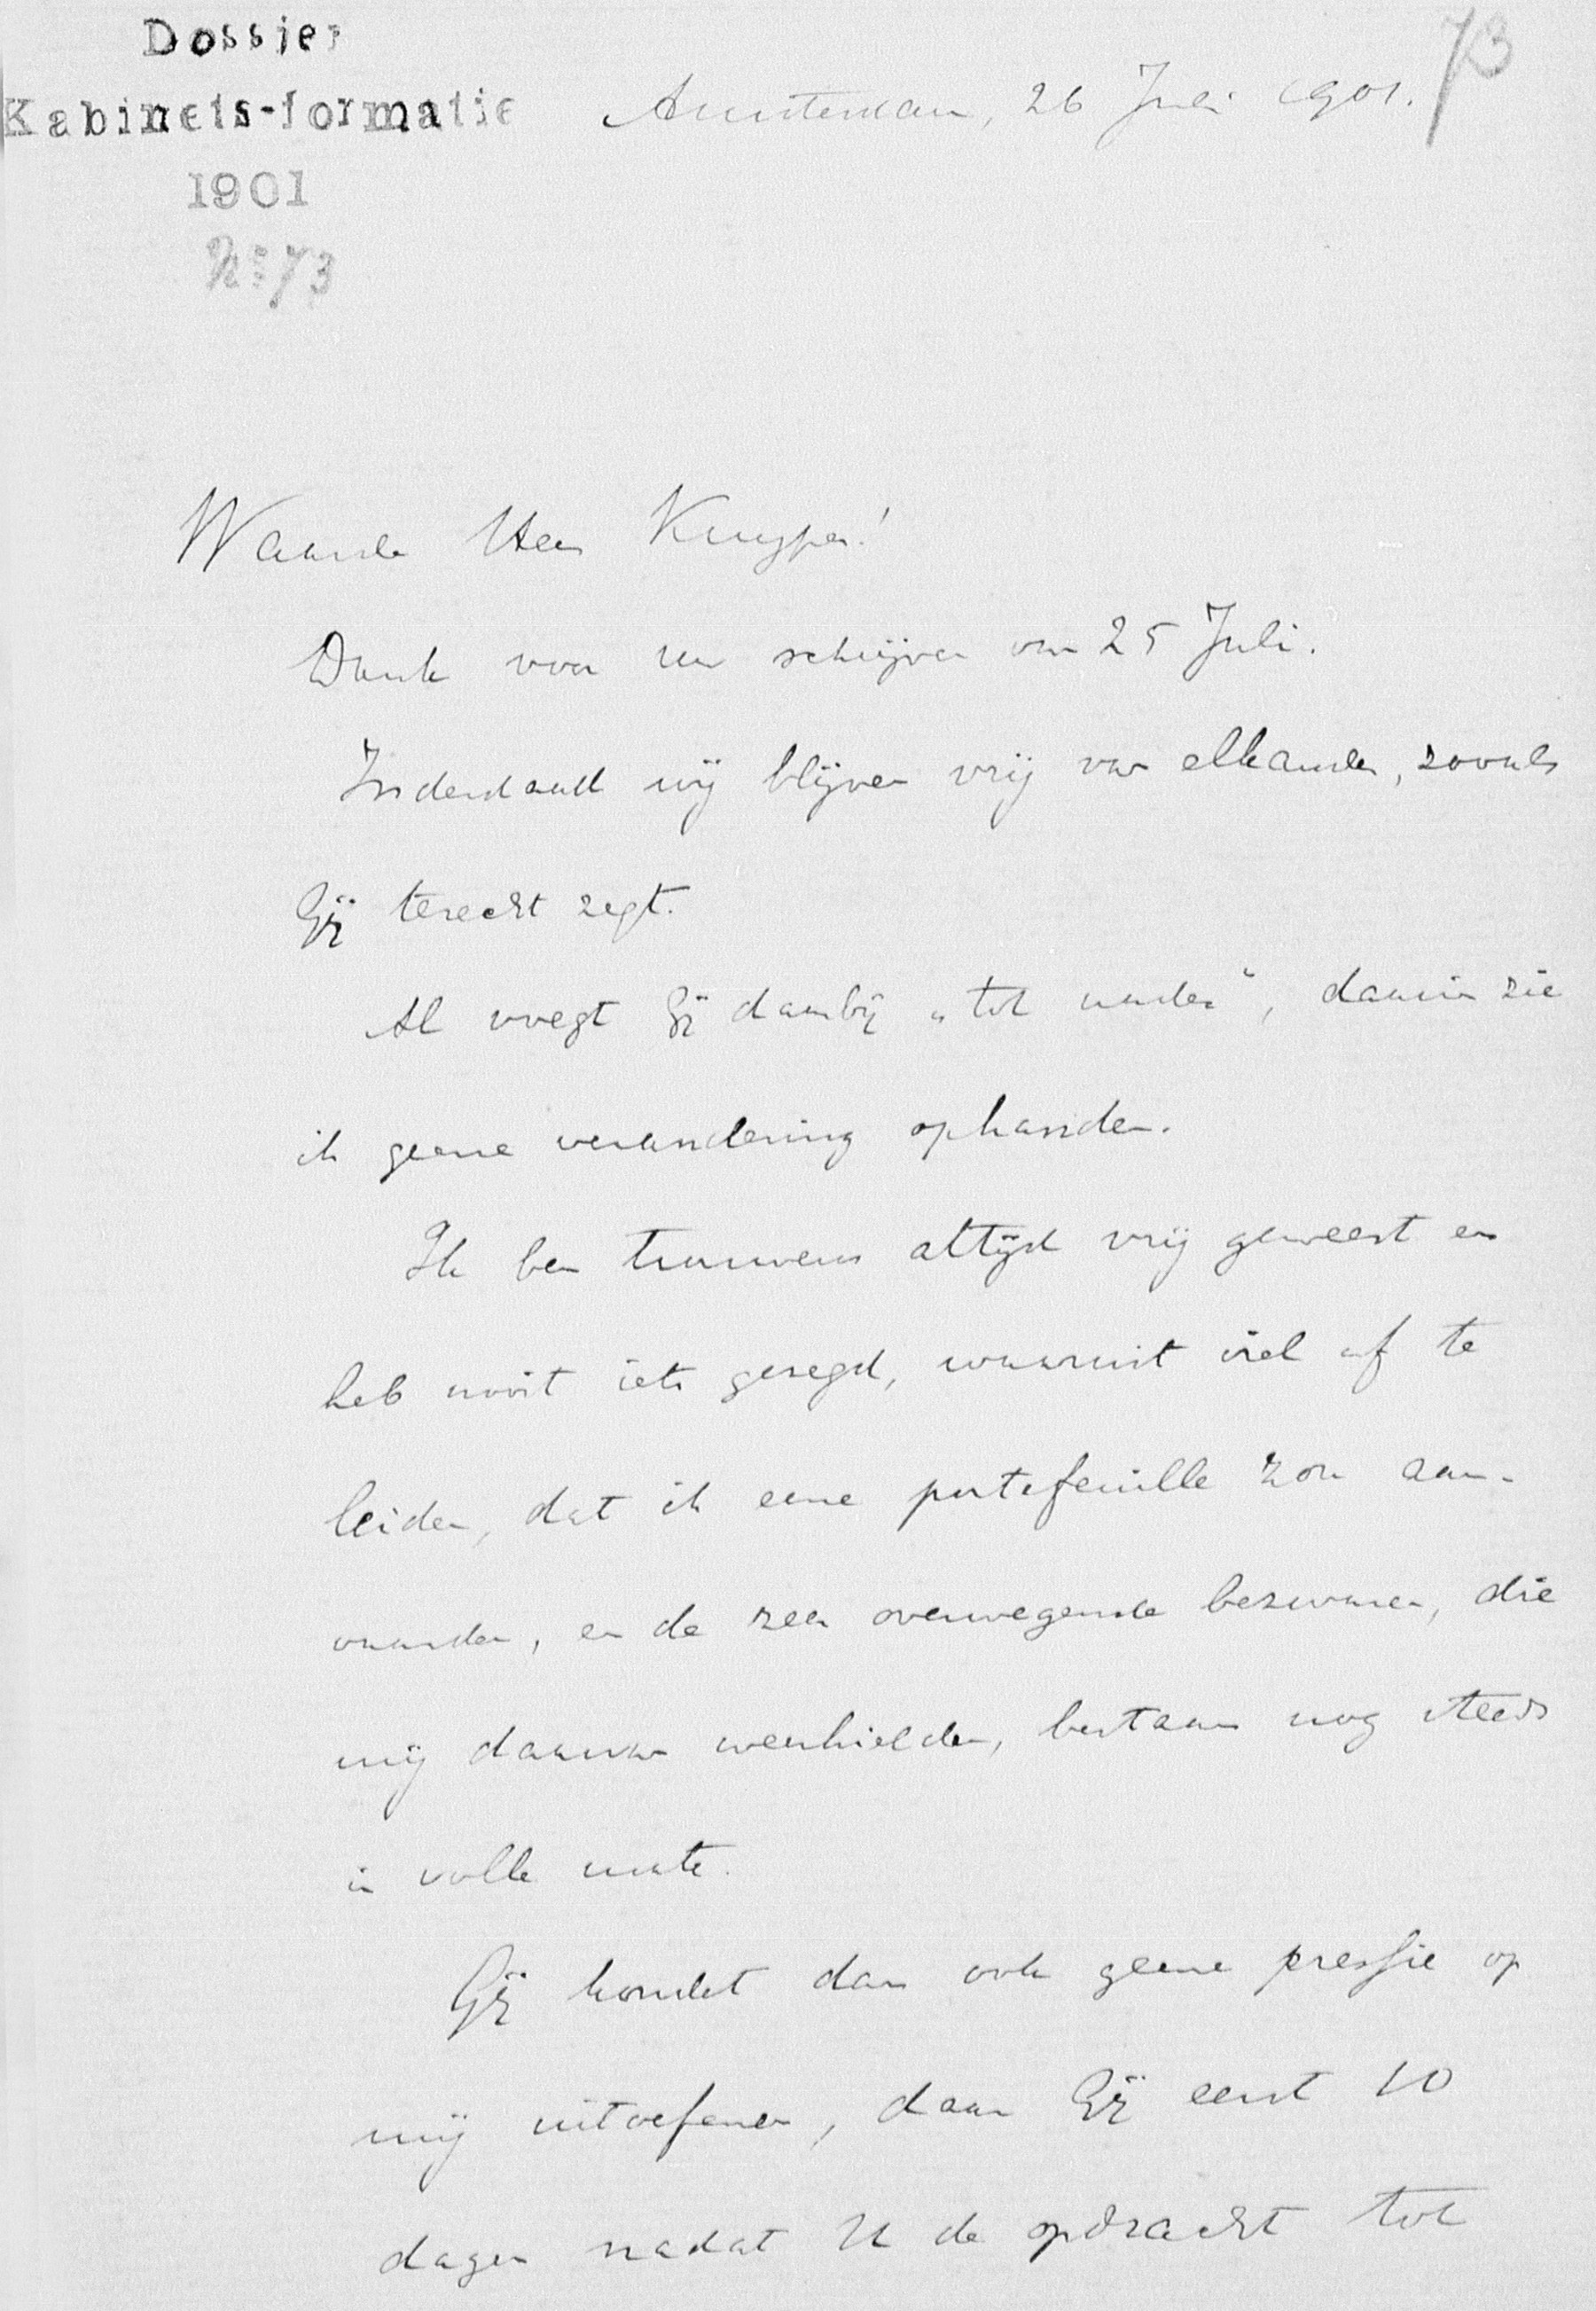 Dossier
Kabinets-formatie
1901
No 73
73
Amsterdam, 26 Juli 1901.
Waarde Heer Kuyper!
Dank voor uw schrijven van 25 Juli.
Inderdaad wij blijven vrij van elkander, zooals
Gij terecht zegt.
Al voegt Gij daarbij „tot nader", daarin zie
ik geene verandering ophanden.
Ik ben trouwens altijd vrij geweest en
heb nooit iets gezegd, waaruit viel af te
leiden, dat ik eene portefeuille zou aan-
vaarden, en de zeer overwegende bezwaren, die
mij daarvan weerhielden, bestaan nog steeds
in volle mate.
Gij kondet dan ook geene pressie op
mij uitoefenen, daar Gij eerst 10
dagen nadat U de opdracht tot